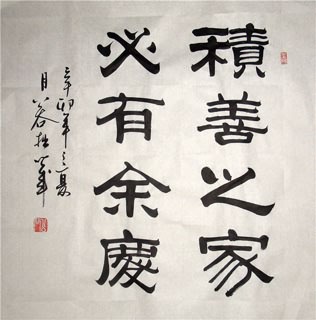 積善之家
必有余慶
辛卯年之夏
月蓉拙筆